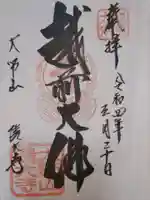 奉拝
令和四年五月二十日
越前大佛
大師山
清大寺